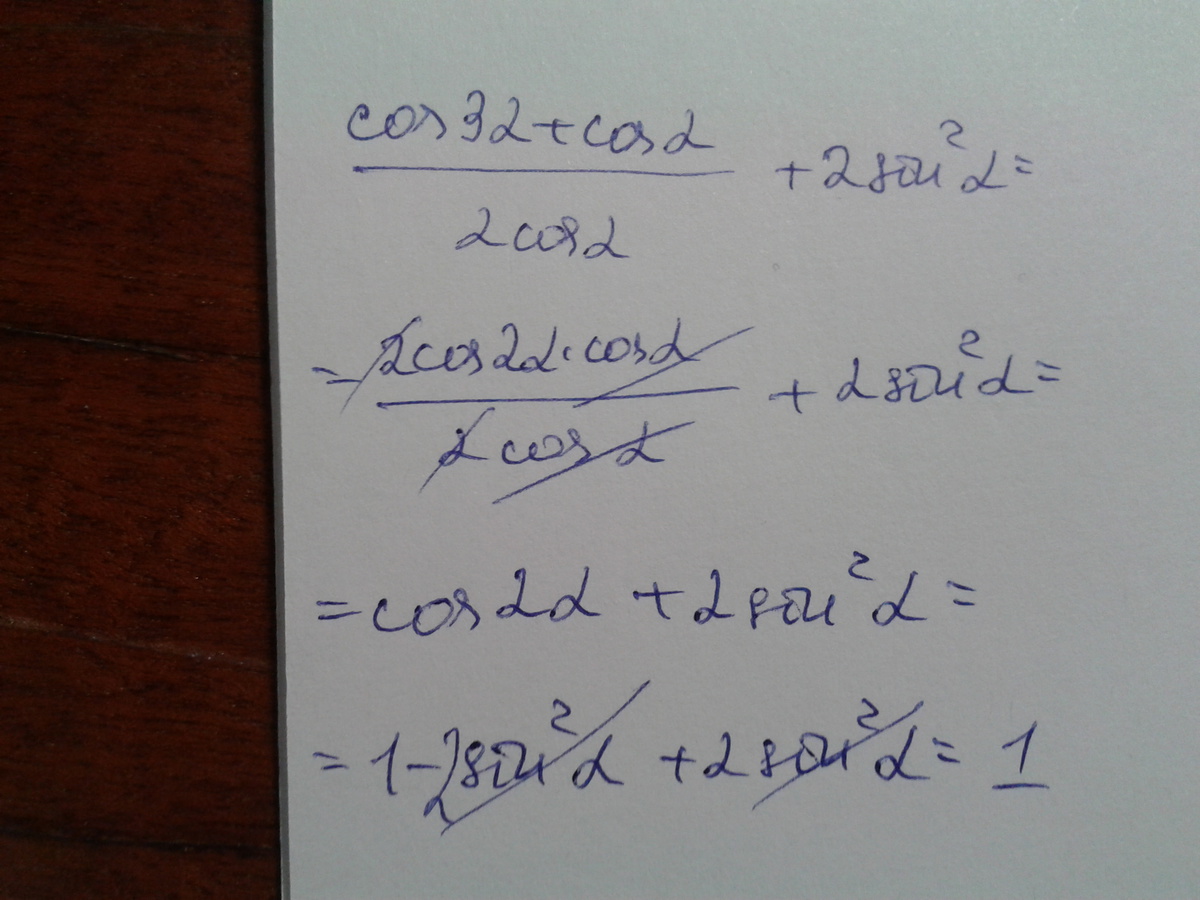 cos3α+cosα
/ 2cosα + 2sin²α=
= 2cos2α·cosα / 2cosα + 2sin²α=
=cos2α + 2sin²α=
= 1-2sin²α + 2sin²α= 1